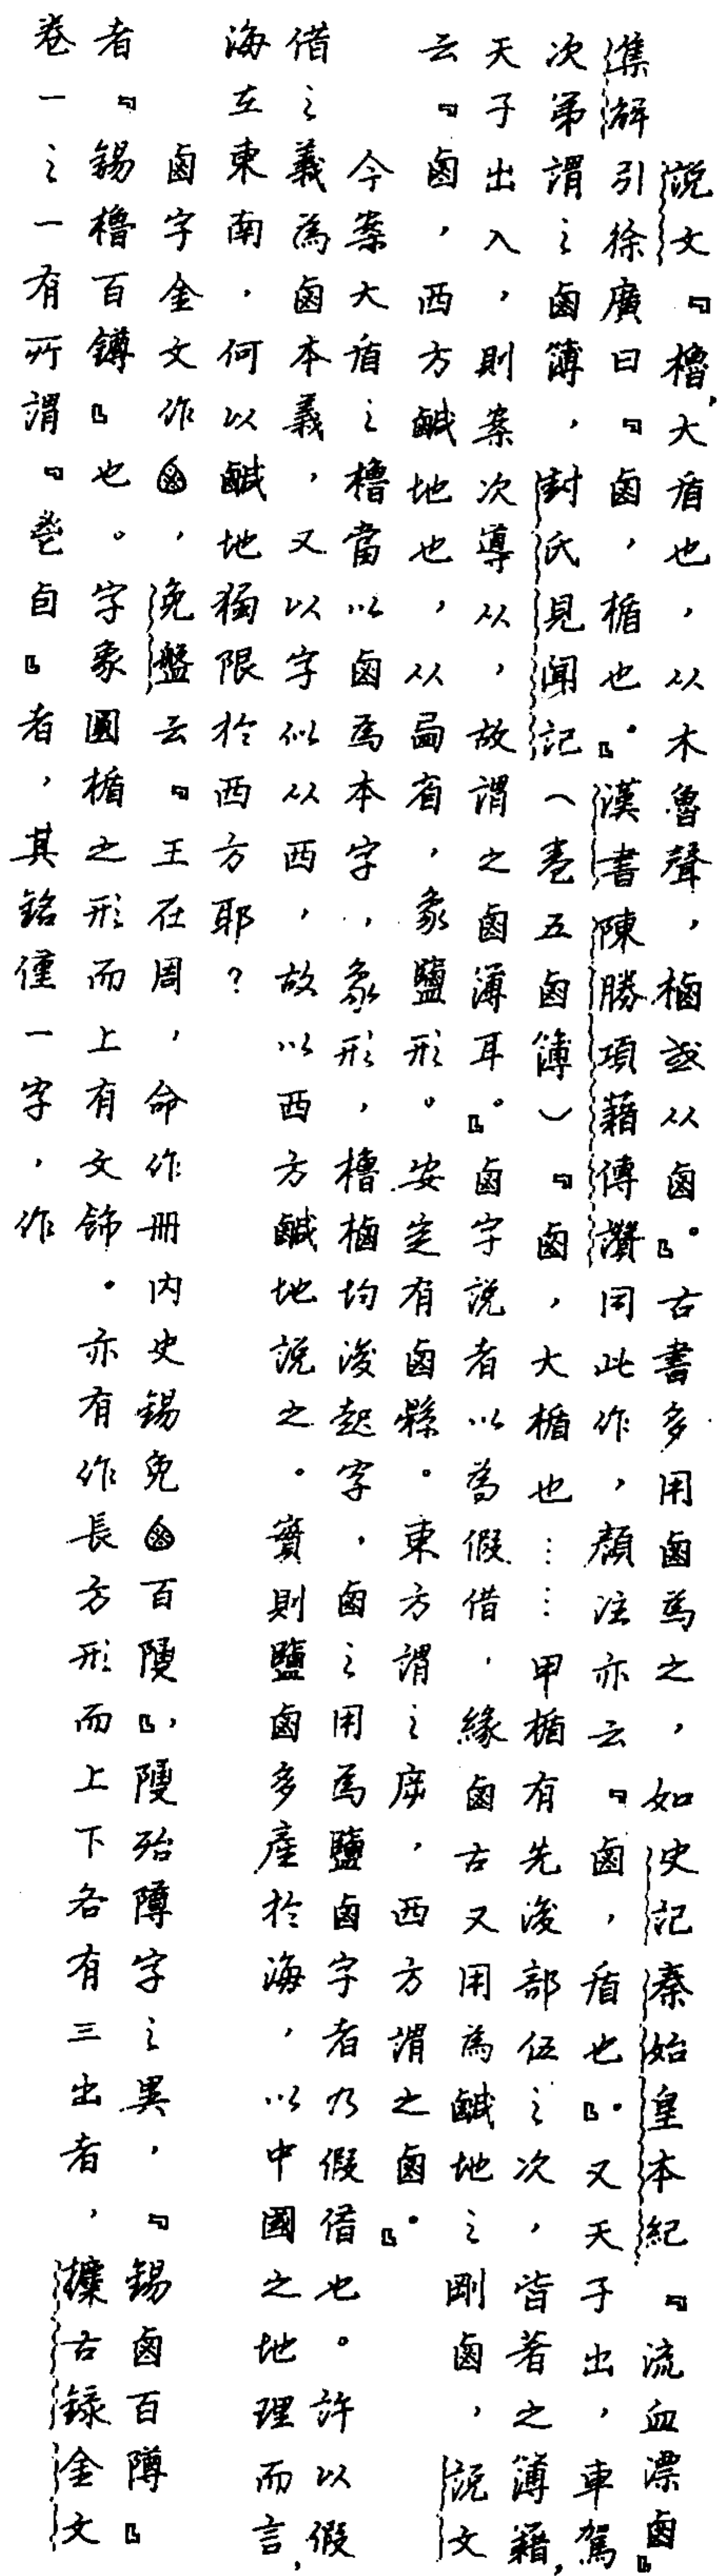 說文『櫓，大盾也，从木魯聲，樐或从鹵。』古書多用鹵為之，如史記秦始皇本紀『流血漂鹵』
集解引徐廣曰『鹵，楯也。』漢書陳勝項藉傳讚用此作，顏注亦云『鹵，盾也。』又天子出，車駕
次第謂之鹵簿，封氏見聞記（卷五鹵簿）『鹵，大楯也……甲楯有先後部伍之次，皆著之簿籍，
天子出入，則案次導从，故謂之鹵薄耳。』鹵字說者以為假借，緣鹵古又用為鹹地之剛鹵，說文
云『鹵，西方鹹地也，从㢴省，象鹽形。安定有鹵縣。東方謂之㡿，西方謂之鹵。』
今案大盾之櫓當以鹵為本字，象形，櫓樐均後起字，鹵之用為鹽鹵字者乃假借也。許以假
借之義為鹵本義，又以字似从西，故以西方鹹地說之。實則鹽鹵多產於海，以中國之地理而言，
海在東南，何以鹹地獨限於西方耶？
鹵字金文作，免盤云『王在周，命作冊內史錫免百隀』，隀殆䧹字之異，『錫鹵百䧹』
者『錫櫓百鐏』也。字象圓楯之形而上有文飾。亦有作長方形而上下各有三出者，攈古録金文
卷一之一有所謂『自』者，其銘僅一字，作